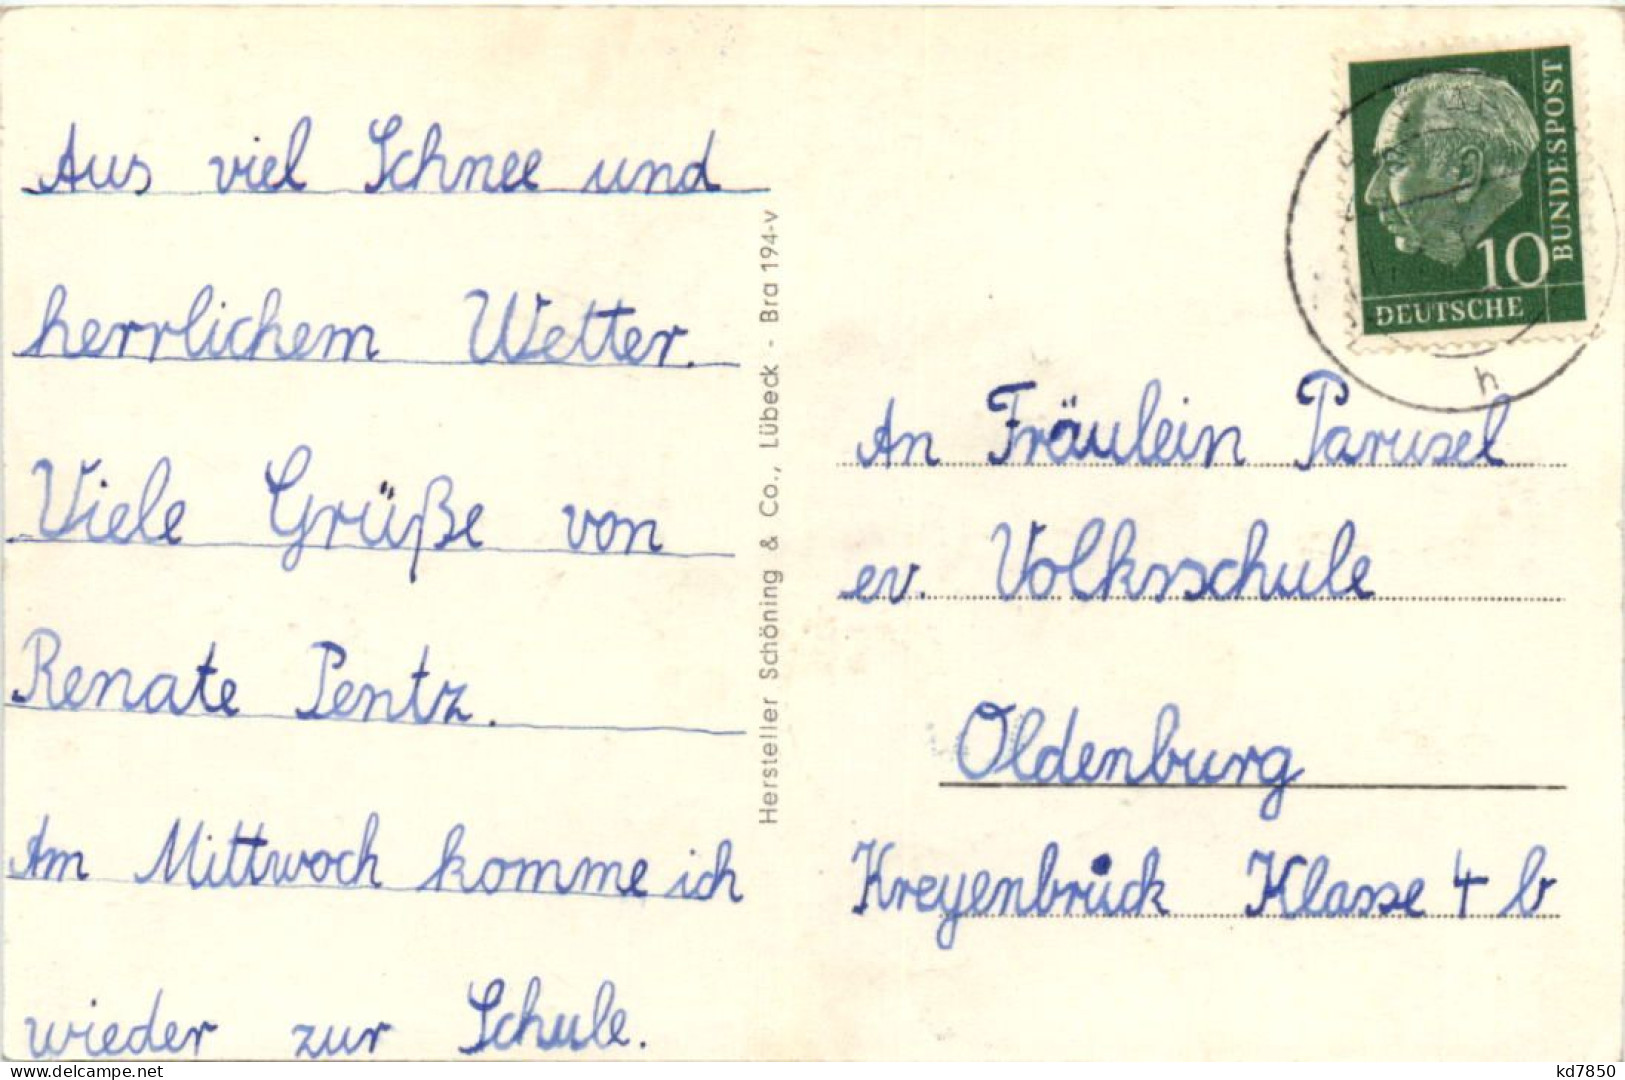 Aus viel Schnee und
herrlichem Wetter.
Viele Grüße von
Renate Pentz.
Am Mittwoch komme ich
wieder zur Schule.
Hersteller Schöning & Co., Lübeck - Bra 194-v
10
DEUTSCHE
BUNDESPOST
h
An Fräulein Parusel
ev. Volksschule
Oldenburg
Kreyenbrück Klasse 4 b
www.delcampe.net
kd7850